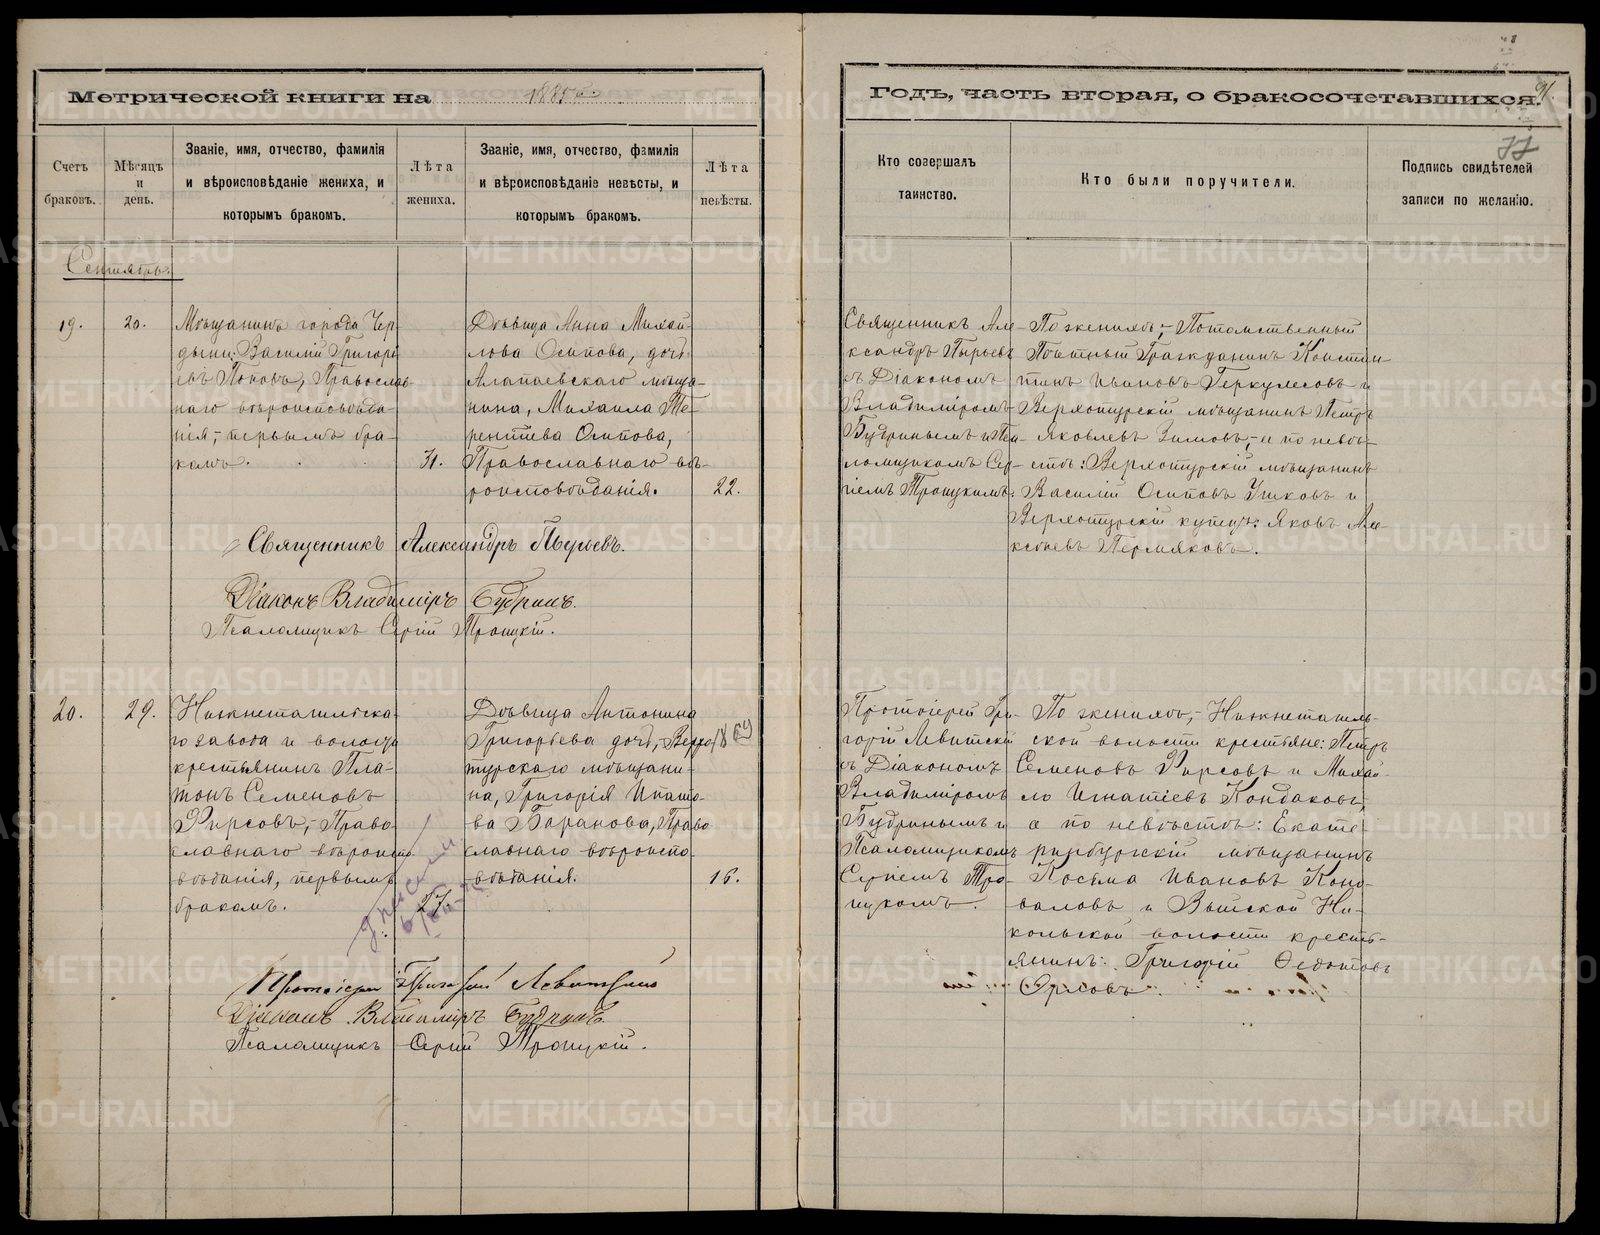 Метрической книги на 1885 г.
Счетъ браковъ.
Мѣсяцъ и день.
Званіе, имя, отчество, фамилія
и вѣроисповѣданіе жениха, и
которымъ бракомъ.
Лѣта
жениха.
Званіе, имя, отчество, фамилія
и вѣроисповѣданіе невѣсты, и
которымъ бракомъ.
Лѣта
невѣсты.
Сентябрь.
19.
20.
Мѣщанинъ города Чер-
дыни: Василій Григорі-
евъ Поповъ, Православ-
наго вѣроисповѣда-
нія, первымъ бра-
комъ.
31.
Дѣвица Анна Михай-
лова Осипова, дочь
Алапаевскаго мѣща-
нина, Михаила Те-
рентіева Осипова,
Православнаго вѣ-
роисповѣданія.
22.
Священникъ Александръ Пырьевъ.
Діаконъ Владиміръ Будринъ.
Псаломщикъ Сергій Троицкій.
20.
29.
Нижнетагильска-
го завода и волости
крестьянинъ Пла-
тонъ Семеновъ
Фирсовъ, Право-
славнаго вѣроиспо-
вѣданія, первымъ
бракомъ.
27.
Дѣвица Антонина
Григорьева дочь, Верхо-
турскаго мѣщани-
на, Григорія Ипато-
ва Баранова, Право
славнаго вѣроиспо-
вѣданія.
1869
16.
Протоіерей Григорій Левитскій
Діаконъ Владиміръ Будринъ.
Псаломщикъ Сергій Троицкій.
Годъ, часть вторая, о бракосочетавшихся.
91.
77
Кто совершалъ
таинство.
Кто были поручители.
Подпись свидѣтелей
записи по желанію.
Священникъ Але-
ксандръ Пырьевъ
съ Діакономъ
Владиміромъ
Будринымъ и Пса-
ломщикомъ Сер-
гіемъ Троицкимъ:
По женихѣ,- Потомственный
Почетный Гражданинъ Констан-
тинъ Ивановъ Геркулесовъ и
Верхотурскій мѣщанинъ Петръ
Яковлевъ Зимовъ,- а по невѣ-
стѣ: Верхотурскій мѣщанинъ
Василій Осиповъ Ушковъ и
Верхотурскій купецъ: Яковъ Але-
ксѣевъ Пермяковъ.
Протоіерей Гри-
горій Левитскій
съ Діакономъ
Владиміромъ
Будринымъ и
Псаломщикомъ
Сергіемъ Тро-
ицкомъ.
По женихѣ,- Нижнетагиль-
ской волости крестьяне: Петръ
Семеновъ Фирсовъ и Михаи-
ло Игнатіевъ Кондаковъ,
а по невѣстѣ: Екате-
ринбургскій мѣщанинъ
Косьма Ивановъ Коно-
валовъ и Выйской Ни-
кольской волости кресть-
янинъ: Григорій Федотовъ
Орловъ.
METRIKI.GASO-URAL.RU